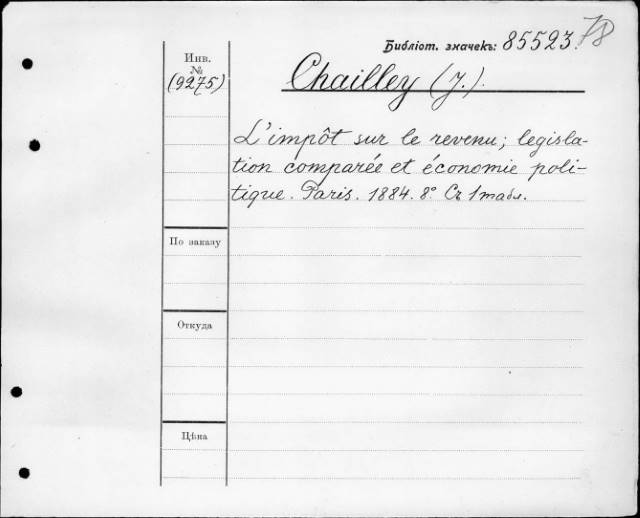 Библіот. значекъ: 85523. 78
Инв.
№
(9275)
Chailley (J.).
L'impôt sur le revenu; législa-
tion comparée et économie poli-
tique. Paris. 1884. 8º. Съ 1 табл.
По заказу
Откуда
Цѣна